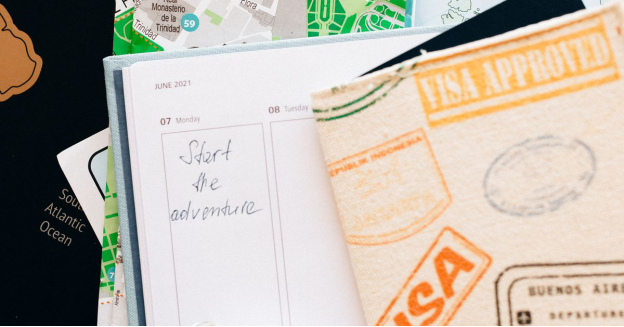 Monasterio
de la
Trinidad
59
Trinidad
Flora
JUNE 2021
07 Monday
08 Tuesday
Start
the
adventure
Atlantic
Ocean
VISA APPROVED
REPUBLIK INDONESIA
VISA
BUENOS
DEPARTURE